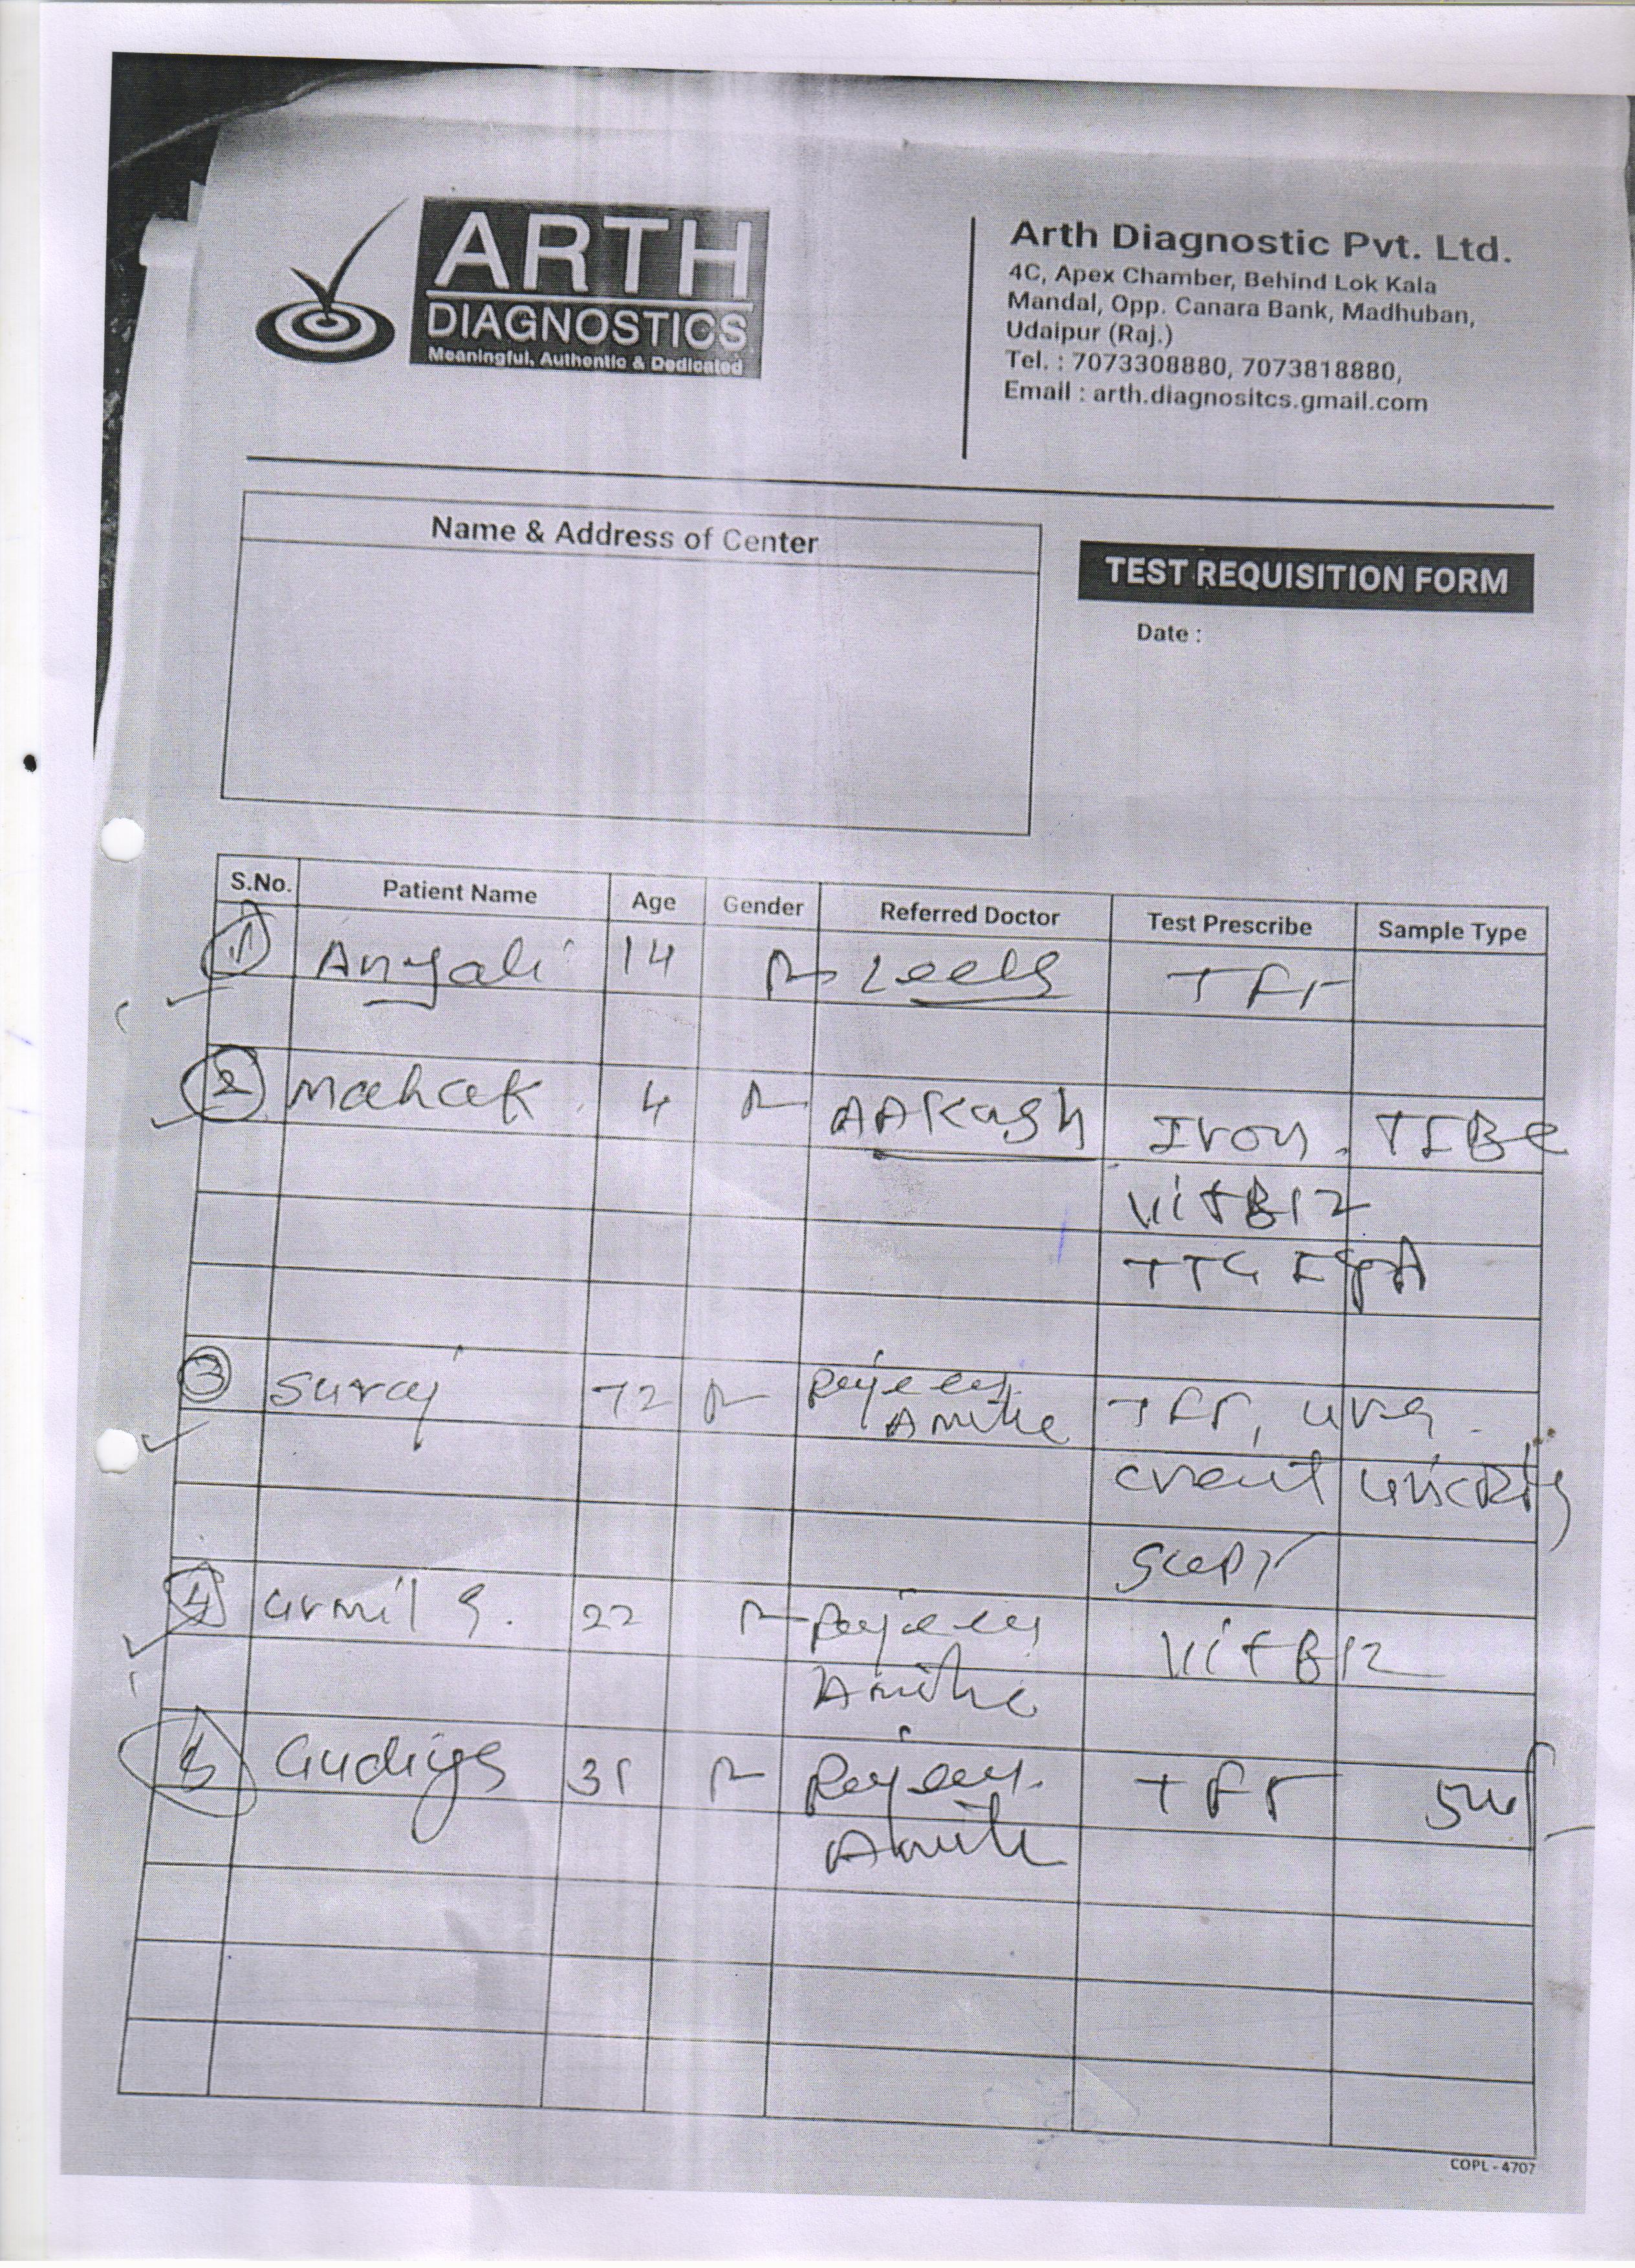 ARTH
DIAGNOSTICS
Meaningful, Authentic & Dedicated
Arth Diagnostic Pvt. Ltd.
4C, Apex Chamber, Behind Lok Kala
Mandal, Opp. Canara Bank, Madhuban,
Udaipur (Raj.)
Tel. : 7073308880, 7073818880,
Email : arth.diagnositcs.gmail.com
Name & Address of Center
TEST REQUISITION FORM
Date :
S.No. Patient Name Age Gender Referred Doctor Test Prescribe Sample Type
1 Anjali 14 TFT
2 Mahak 4 AAKash Iron. TIBC
Vit B12
TTG IgA
3 Suraj 72 TFT,
4 22 Vit B12
5 Gudiya TFT
COPL - 4707